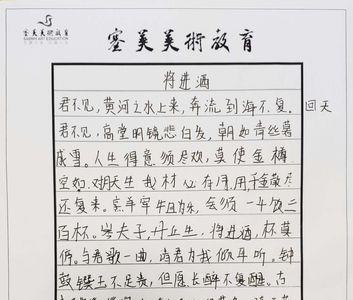 赛美美術教育
SAIMEI ART EDUCATION
赛美美術教育
将进酒
君不见,黄河之水上来,奔流到海不复 回天
君不见,高堂明镜悲白发,朝如青丝暮
成雪。人生得意须尽欢,莫使金樽
空如 天生我材必有用,千金散尽
还复来。烹羊宰牛且为乐,会须一饮三
百杯。岑夫子,丹丘生,将进酒,杯莫
停。与君歌一曲,请君为我倾耳听。钟
鼓馔玉不足贵,但愿长醉不复醒。古